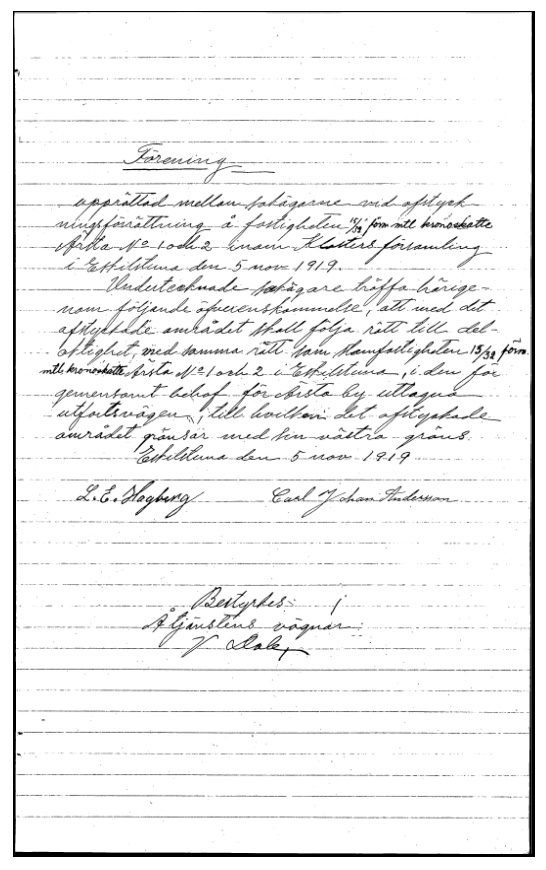 Förening
upprättad mellan sakägarne vid afstyck-
ningsförrättning å fastigheten 15/32 förm mtl kronoskatte
Årsta No 1 och 2 inom Klosters församling
i Eskilstuna den 5 nov. 1919.
Undertecknade sakägare träffa härige-
nom följande öfverenskommelse, att med det
afstyckade området skall följa rätt till del-
aktighet, med samma rätt som stamfastigheten 15/32 förm
mtl kronoskatte Årsta No 1 och 2 i Eskilstuna, i den för
gemensamt behof för Årsta by uttagna
utfartsvägen, till hvilken det afstyckade
området gränsar med sin västra gräns.
Eskilstuna den 5 nov 1919
L. E. Hagberg Carl Johan Andersson
Bestyrkes:
Å tjänstens vägnar: